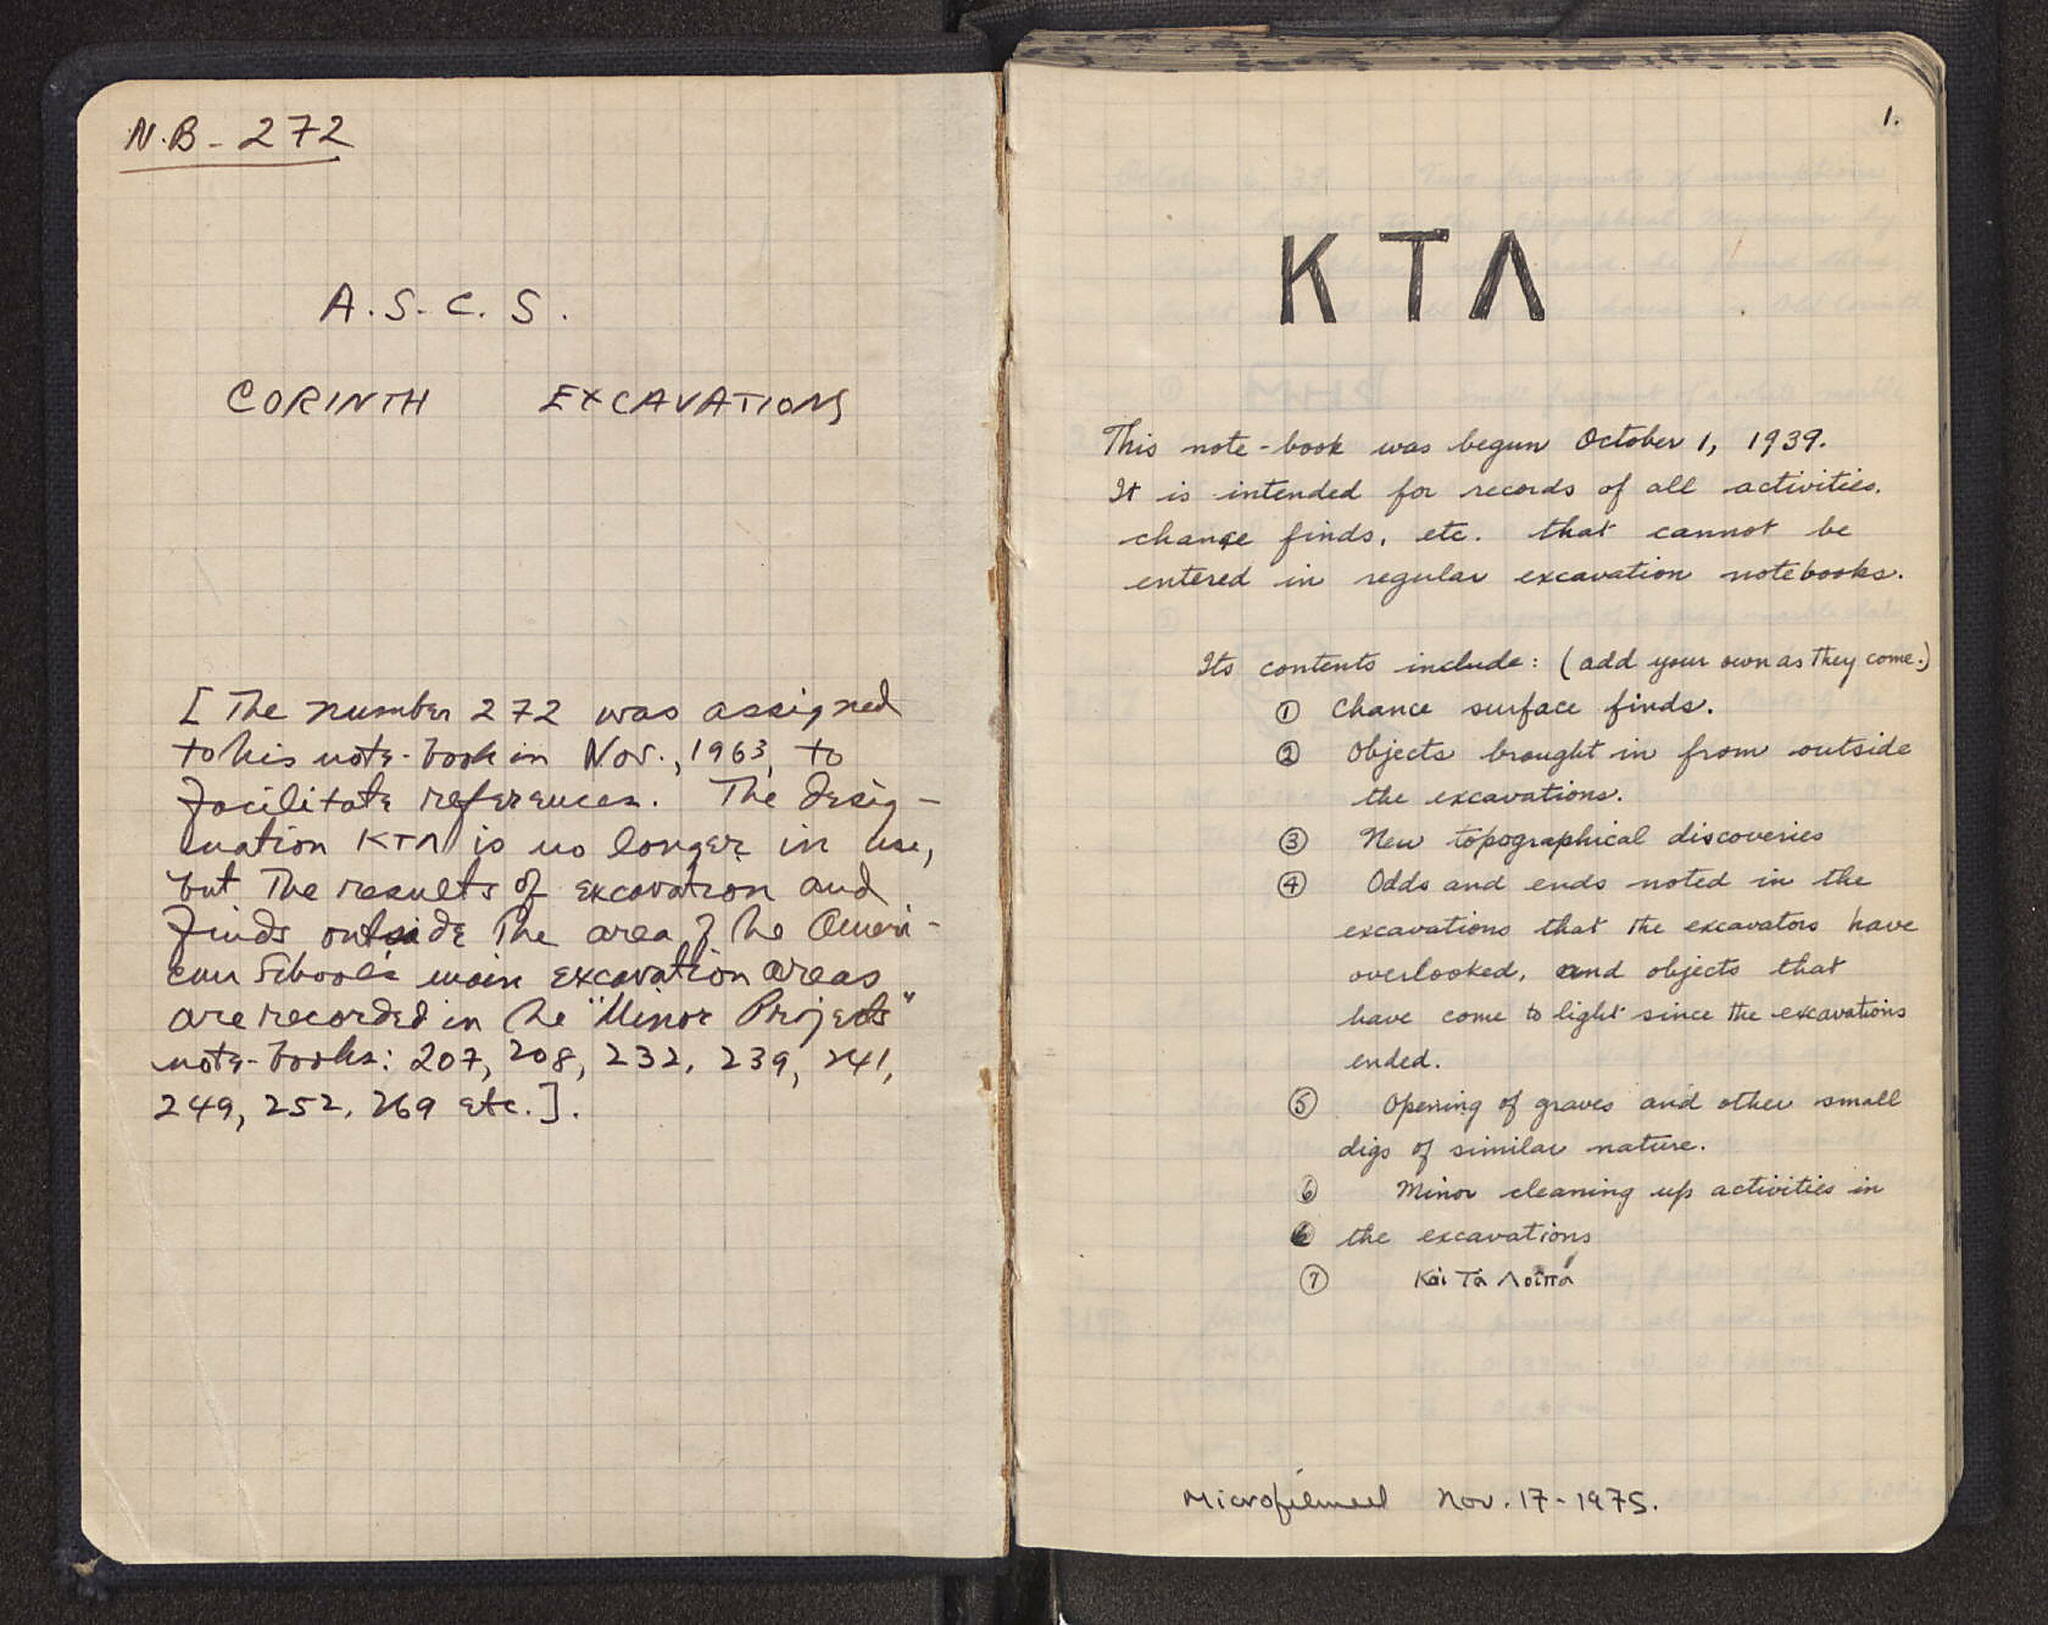 N.B - 272
A.S.C.S.
CORINTH EXCAVATIONS
[ The number 272 was assigned
to this note-book in Nov., 1963, to
facilitate references. The desig-
nation KTΛ is no longer in use,
but the results of excavation and
finds outside the area of the Ameri-
can School's main excavation areas
are recorded in the "Minor Projects"
note-books: 207, 208, 232, 239, 241,
249, 252, 269 etc. ].
1.
ΚΤΛ
This note-book was begun October 1, 1939.
It is intended for records of all activities,
chance finds, etc. that cannot be
entered in regular excavation notebooks.
Its contents include: (add your own as they come.)
① Chance surface finds.
② Objects brought in from outside
the excavations.
③ New topographical discoveries
④ Odds and ends noted in the
excavations that the excavators have
overlooked, and objects that
have come to light since the excavations
ended.
⑤ Opening of graves and other small
digs of similar nature.
⑥ Minor cleaning up activities in
the excavations
⑦ Καὶ Τὰ Λοιπά
Microfilmed Nov. 17 - 1975.